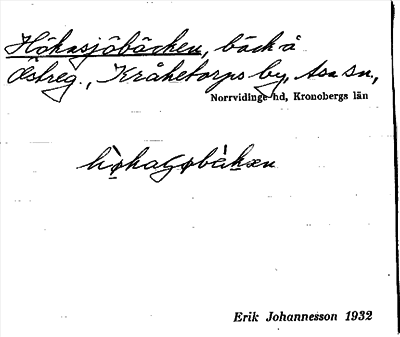 Hökasjöbäcken, bäck å
Östreg., Kråketorps by, Asa sn,
Norrvidinge hd, Kronobergs län
Erik Johannesson 1932